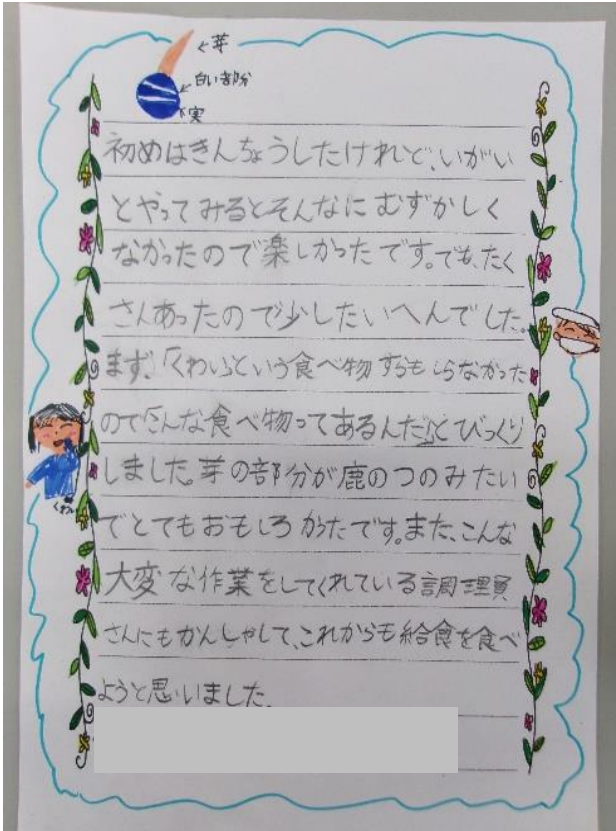 芽
白い部分
実
初めはきんちょうしたけれど、いがい
とやってみるとそんなにむずかしく
なかったので楽しかったです。でも、たく
さんあったので少したいへんでした。
まず、「くわい」という食べ物すらもしらなかった
ので「こんな食べ物ってあるんだ」とびっくり
しました。芽の部分が鹿のつのみたい
でとてもおもしろかったです。また、こんな
大変な作業をしてくれている調理員
さんにもかんしゃして、これからも給食を食べ
ようと思いました。
くわい